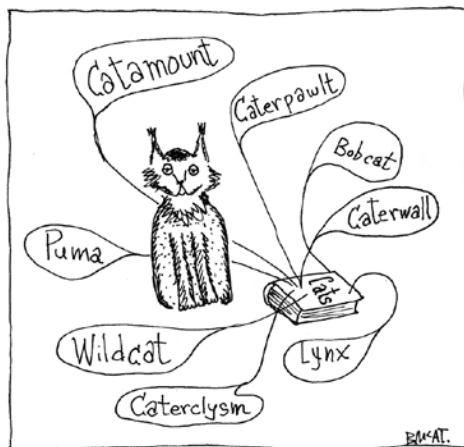 Catamount
Caterpawlt
Bobcat
Caterwall
Puma
Cats
Wildcat
Lynx
Caterclysm